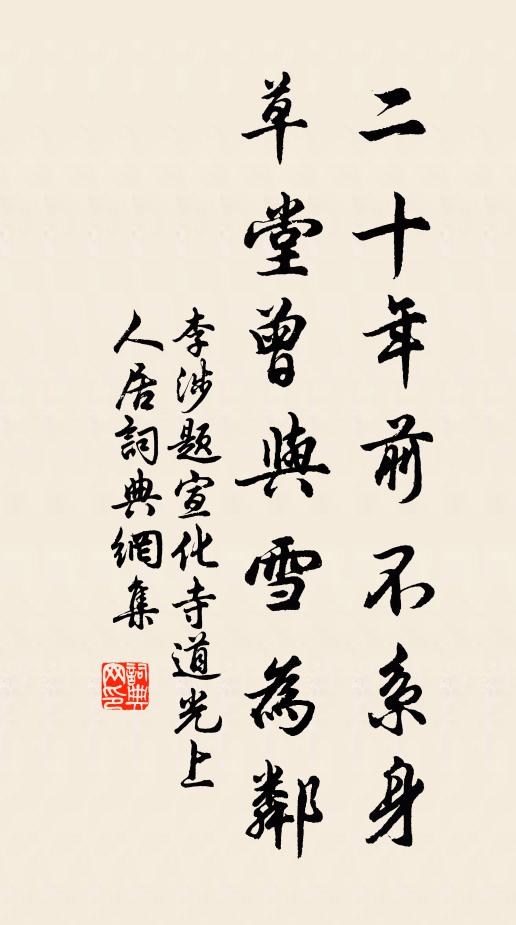 二十年前不系身
草堂曾與雪為鄰
李涉題宣化寺道光上
人居詞典網集
詞典網印